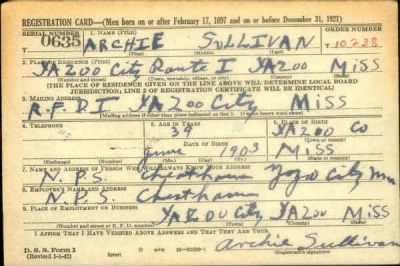 REGISTRATION CARD—(Men born on or after February 17, 1897 and on or before December 31, 1921)
SERIAL NUMBER 1. NAME (Print) ORDER NUMBER
0635 ARCHIE SULLIVAN T10,233
(First) (Middle) (Last)
2. PLACE OF RESIDENCE (Print)
YAZOO City Route I YAZOO MISS
(Number and street) (Town, township, village, or city) (County) (State)
[THE PLACE OF RESIDENCE GIVEN ON THE LINE ABOVE WILL DETERMINE LOCAL BOARD
JURISDICTION; LINE 2 OF REGISTRATION CERTIFICATE WILL BE IDENTICAL]
3. MAILING ADDRESS
R.F.D I YAZOO City MISS
[Mailing address if other than place indicated on line 2. If same insert word same]
4. TELEPHONE 5. AGE IN YEARS 6. PLACE OF BIRTH
39 YAZOO CO
DATE OF BIRTH (Town or county)
June 1903 MISS
7. NAME AND ADDRESS OF PERSON WHO WILL ALWAYS KNOW YOUR ADDRESS
P.S. Yazoo City Miss
8. EMPLOYER'S NAME AND ADDRESS
N.P.S.
9. PLACE OF EMPLOYMENT OR BUSINESS
YAZOO City YAZOO MISS
(Number and street or R. F. D. number) (Town) (County) (State)
I AFFIRM THAT I HAVE VERIFIED ABOVE ANSWERS AND THAT THEY ARE TRUE.
D. S. S. Form 1 Archie Sullivan
(Registrant's signature)